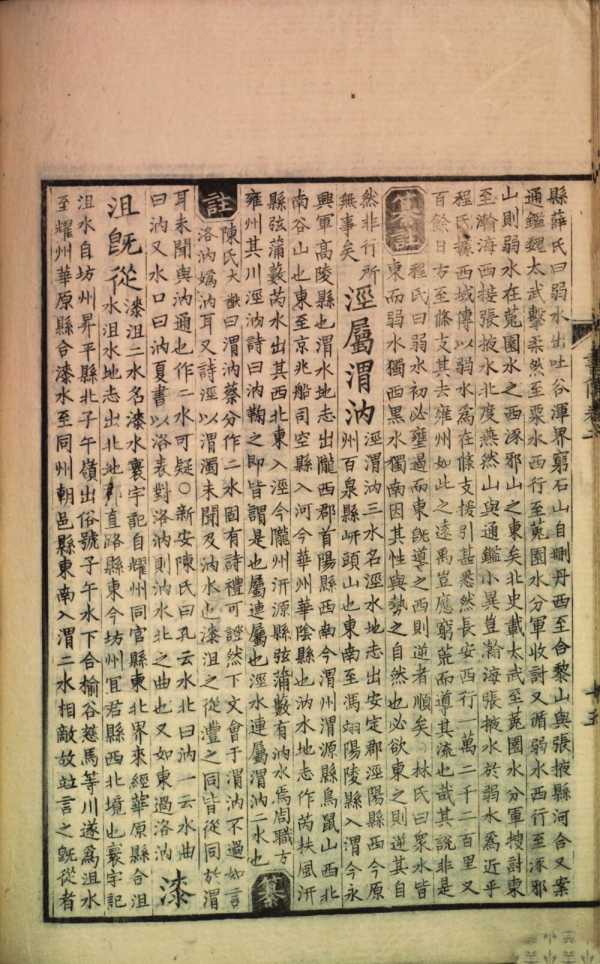 縣薛氏曰弱水出吐谷渾界窮石山自刪丹西至合黎山與張掖縣河合又案
通鑑魏太武擊柔然至栗水西行至菟園水分軍收討又循弱水西行至涿邪
山則弱水在菟園水之西涿邪山之東矣北史載太武至菟園水分軍搜討東
至瀚海西接張掖水北度燕然山與通鑑小異豈瀚海張掖水於弱水爲近乎
程氏據西域傳以弱水爲在條支援引甚悉然長安西行一萬二千二百里又
百餘日方至條支其去雍州如此之遠禹豈應窮荒而導其流也哉其說非是
程氏曰弱水初必壅遏而東旣導之西則逆者順矣 林氏曰眾水皆
東而弱水獨西黑水獨南因其性與勢之自然也必欲東之則逆其自
然非行所
無事矣
涇屬渭汭
涇渭汭三水名涇水地志出安定郡涇陽縣西今原
州百泉縣岍頭山也東南至馮翊陽陵縣入渭今永
興軍高陵縣也渭水地志出隴西郡首陽縣西南今渭州渭源縣鳥鼠山西北
南谷山也東至京兆船司空縣入河今華州華陰縣也汭水地志作芮扶風汧
縣弦蒲藪芮水出其西北東入涇今隴州汧源縣弦蒲藪有汭水焉周職方
雍州其川涇汭詩曰汭鞫之即皆謂是也屬連屬也涇水連屬渭汭二水也
纂
註
陳氏大猷曰渭汭蔡分作二水固有詩禮可證然下文會于渭汭不過如言
洛汭嬀汭耳又詩涇以渭濁未聞及汭水也漆沮之從灃之同皆從同於渭
耳未聞與汭通也作二水可疑○新安陳氏曰孔云水北曰汭一云水曲
曰汭又水口曰汭夏書以洛表對洛汭則汭水北之曲也又如東過洛汭
漆
沮旣從
漆沮二水名漆水寰宇記自耀州同官縣東北界來經華原縣合沮
水沮水地志出北地郡直路縣東今坊州宜君縣西北境也寰宇記
沮水自坊州昇平縣北子午嶺出俗號子午水下合榆谷慈馬等川遂爲沮水
至耀州華原縣合漆水至同州朝邑縣東南入渭二水相敵故並言之旣從者